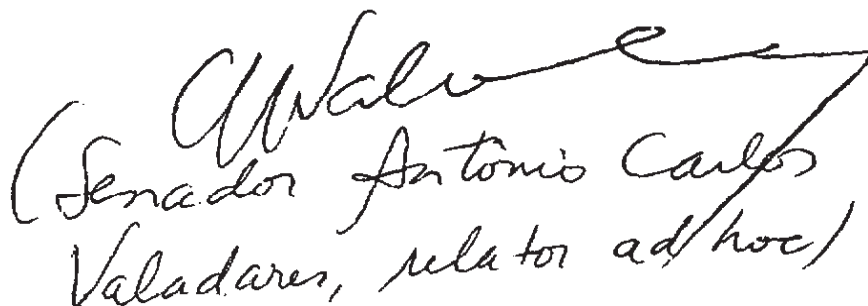 (Senador Antônio Carlos
Valadares, relator ad hoc)